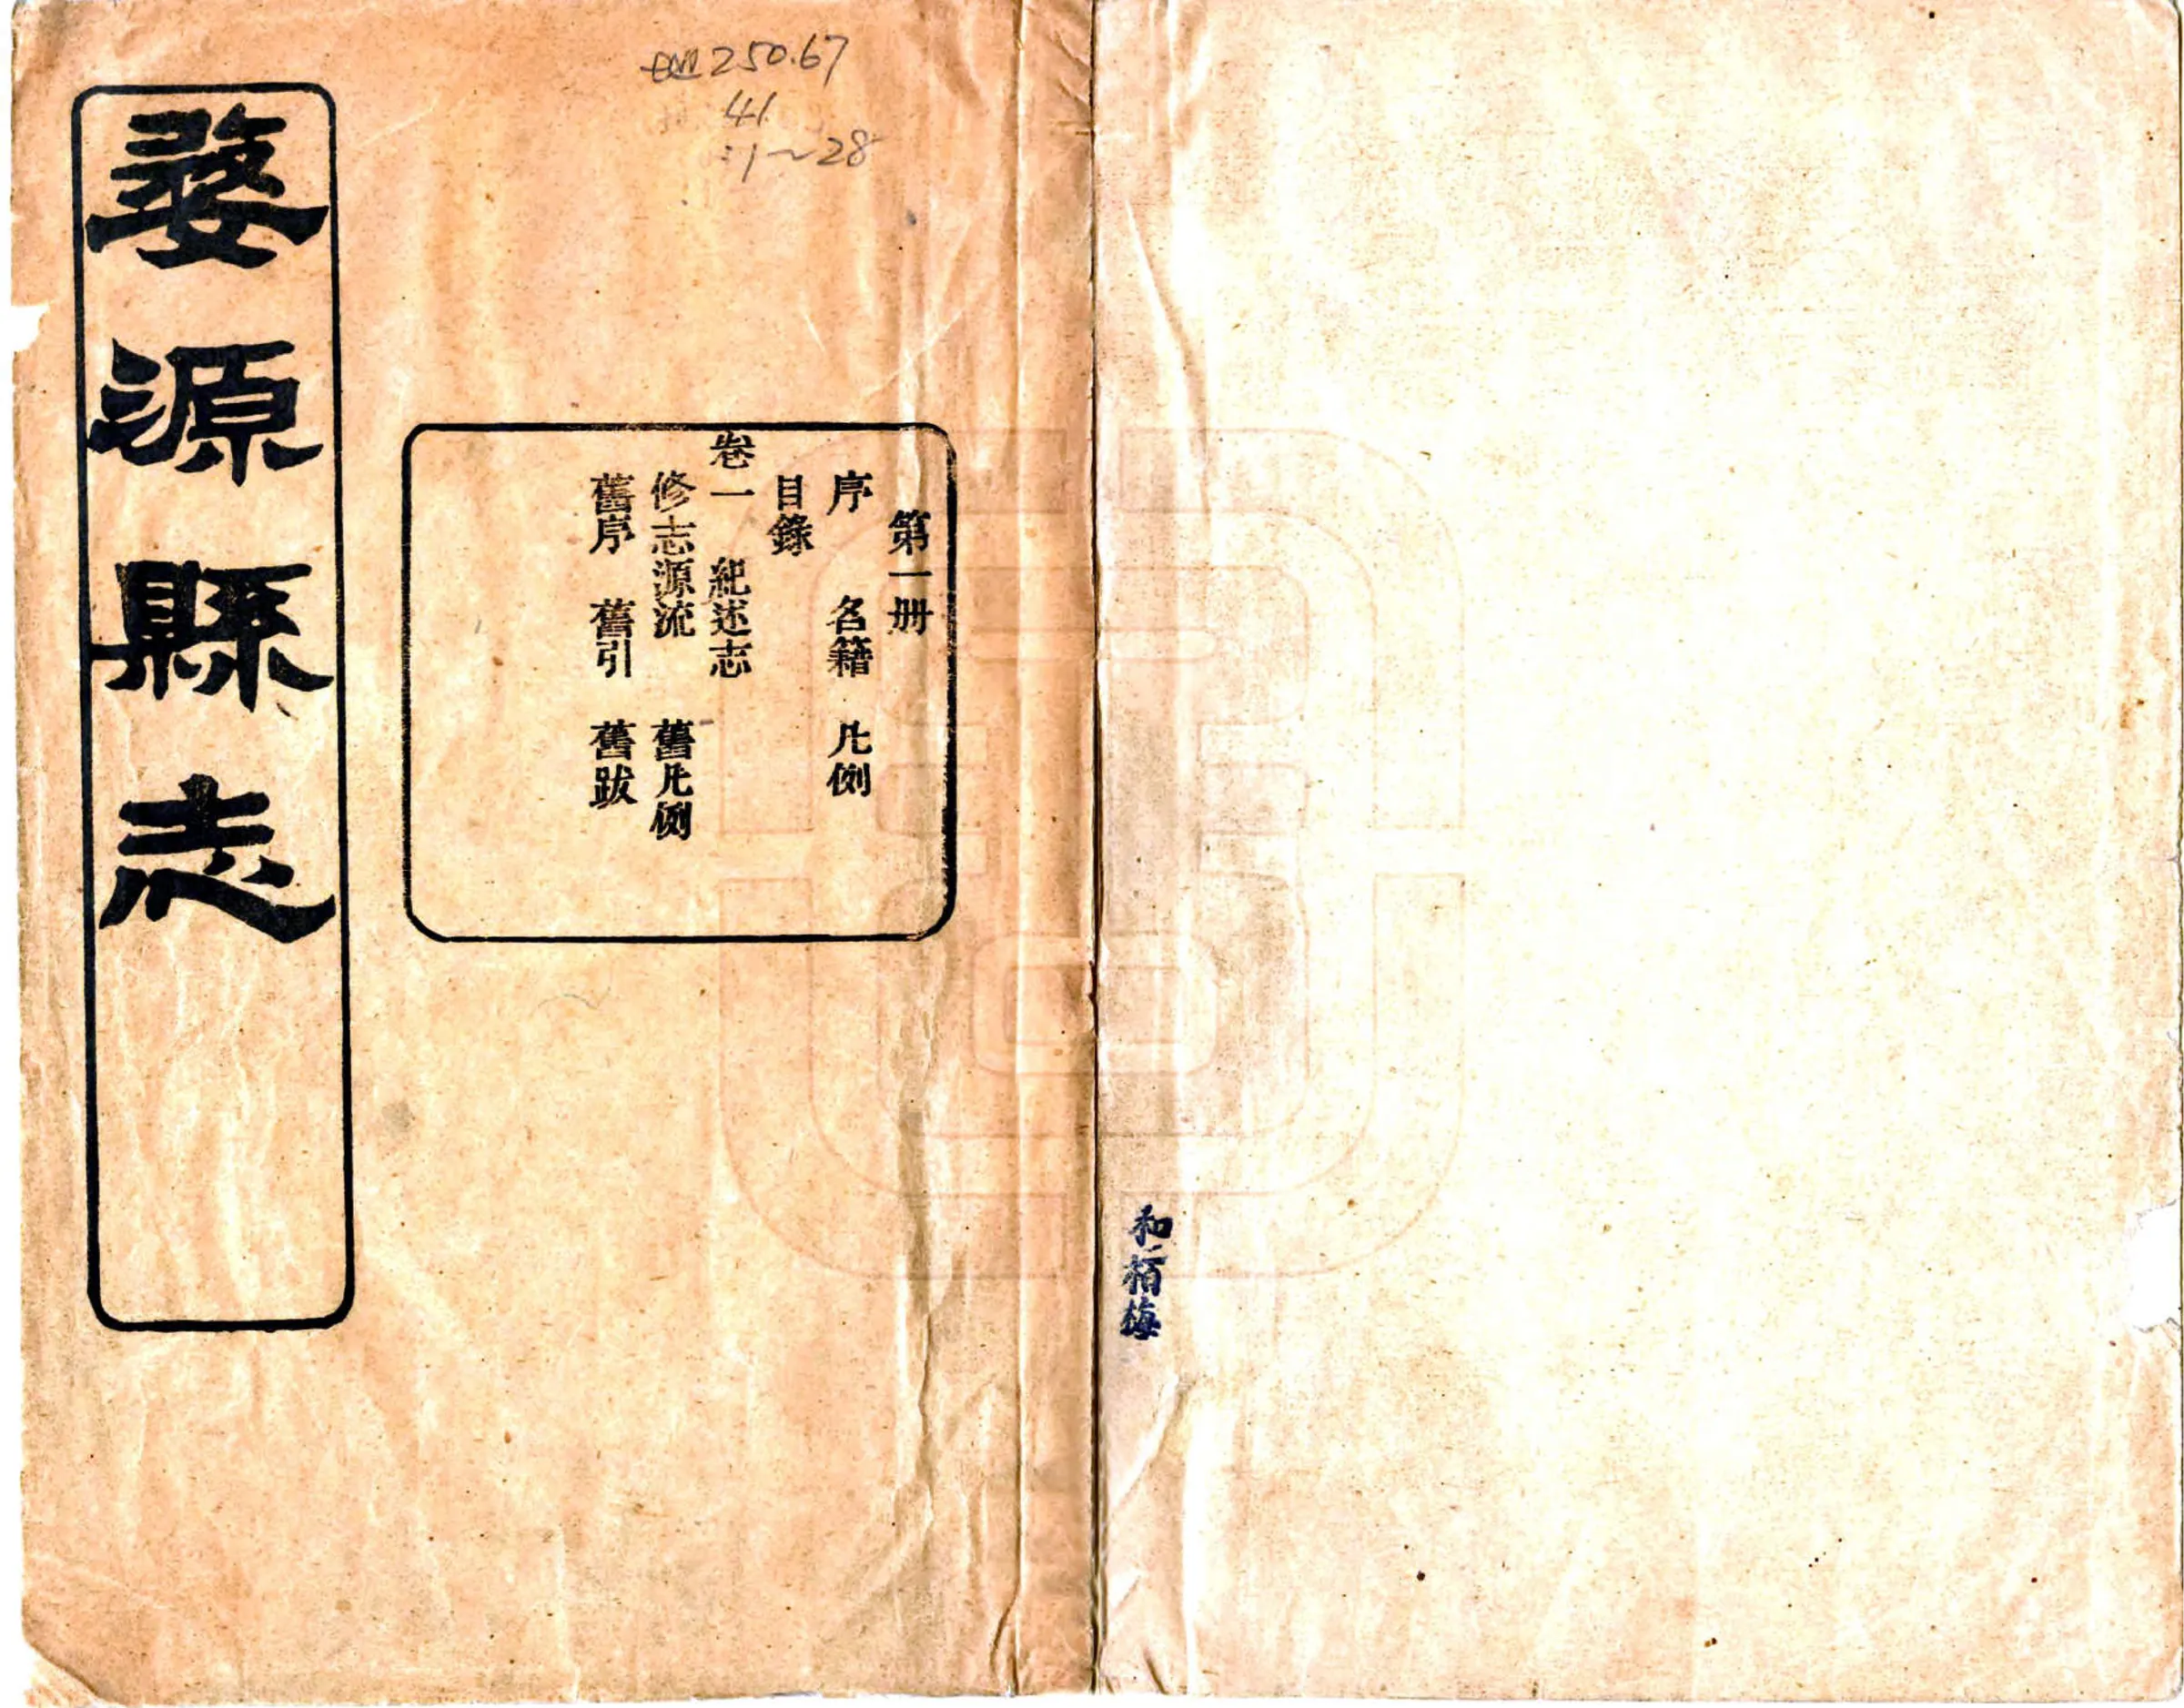 婺源縣志
250.67
41
:1~28
第一册
序　名籍　凡例
目錄
卷一　紀述志
修志源流　舊凡例
舊序　舊引　舊跋
和栢梅